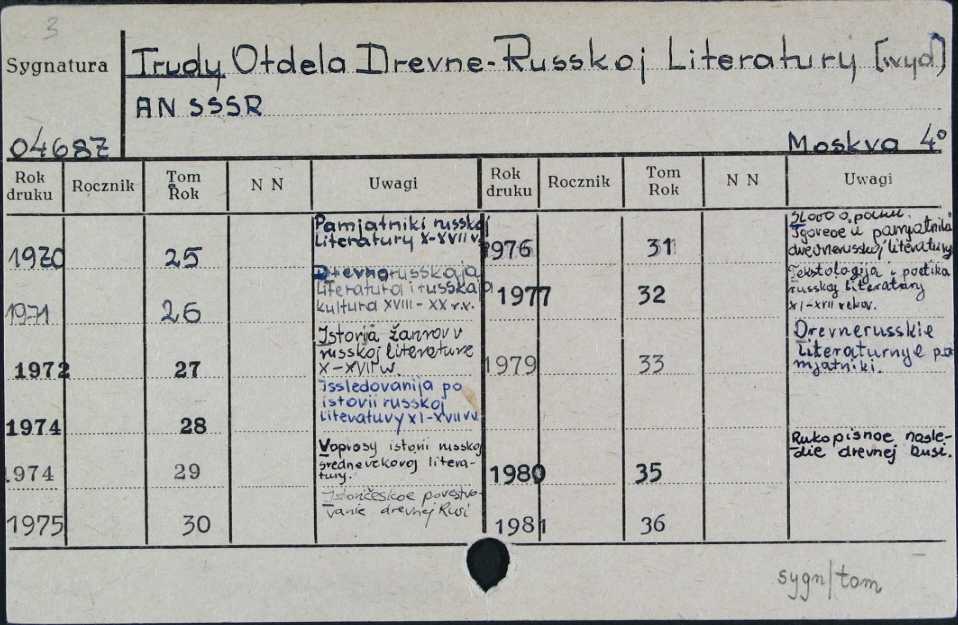 3
Sygnatura
Trudy Otdela Drevne-Russkoj Literatury [wyd]
AN SSSR
04687
Moskva 4°
Rok druku Rocznik Tom Rok N N Uwagi Rok druku Rocznik Tom Rok N N Uwagi
1970 25 Pamjatniki russkoj
literatury X-XVII v.
1971 26 Drevnerusskaja
literatura i russkaja
kultura XVIII-XX v.v.
1972 27 Istorija žanrov v
russkoj literature
X-XVII w.
1974 28 Issledovanija po
istorii russkoj
literatury XI-XVII vv
1974 29 Voprosy istorii russkoj
srednevekovoj litera-
tury.
1975 30 Istoričeskoe povestvo-
vanie drevnej Rusi
1976 31 Slovo o polku.
Igoreve i pamjatniki
drevnerusskoj literatury
1977 32 Tekstologija i poetika
russkoj literatury
XI-XVII vekov.
1979 33 Drevnerusskie
literaturnye pa-
mjatniki.
1980 35 Rukopisnoe nasle-
die drevnej Rusi.
1981 36
sygn/tom